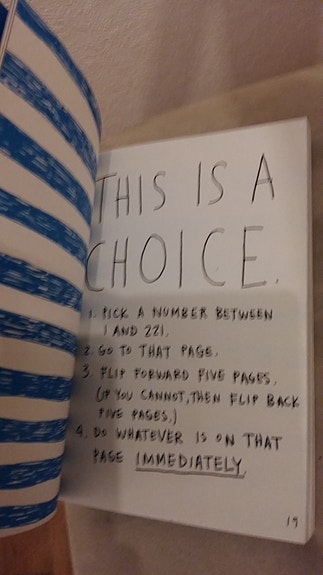 THIS IS A
CHOICE.
1. PICK A NUMBER BETWEEN
1 AND 221.
2. GO TO THAT PAGE.
3. FLIP FORWARD FIVE PAGES.
(IF YOU CANNOT, THEN FLIP BACK
FIVE PAGES.)
4. DO WHATEVER IS ON THAT
PAGE IMMEDIATELY.
19